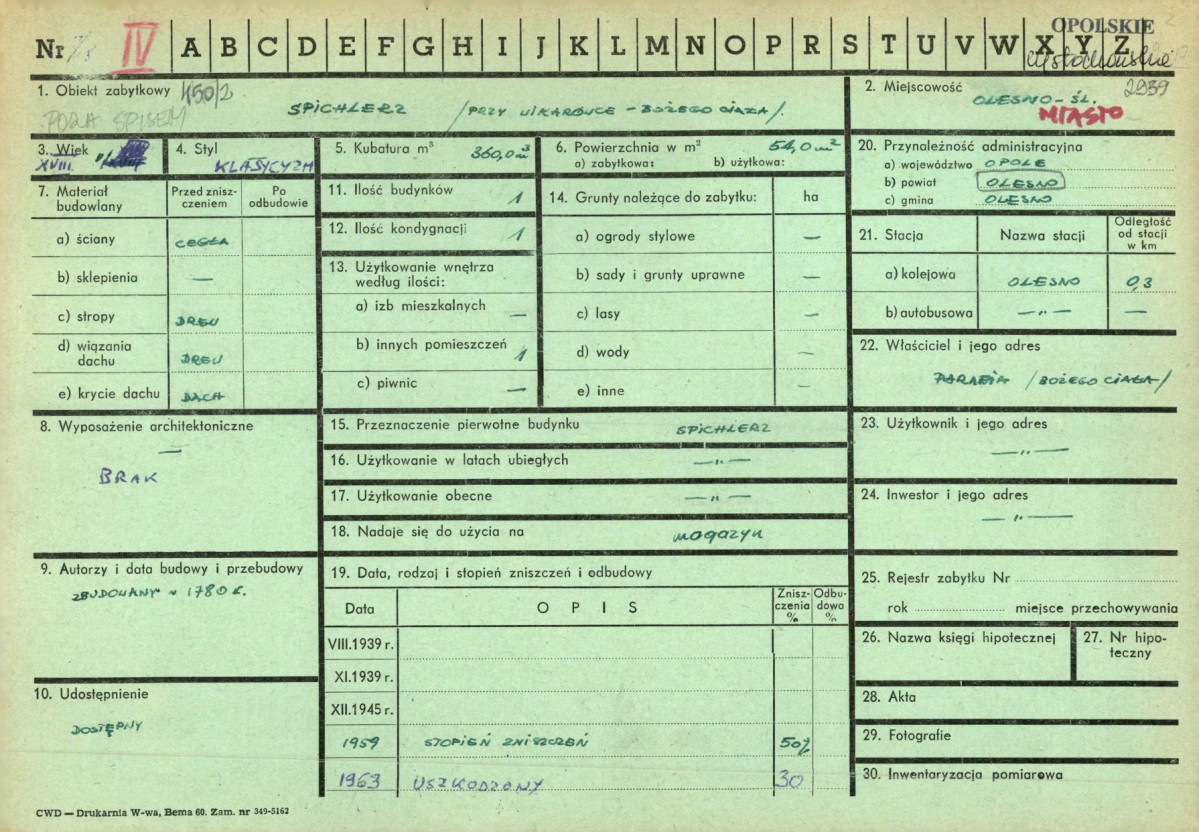 OPOLSKIE
Nr IV A B C D E F G H I J K L M N O P R S T U V W X Y Z
częstochowskie
1. Obiekt zabytkowy 450/2
SPICHLERZ /PRZY WIKARÓWCE – BOŻEGO CIAŁA/.
POZA SPISEM
2. Miejscowość 2939
OLESNO – ŚL.
MIASTO
3. Wiek
XVIII.
4. Styl
KLASYCYZM
5. Kubatura m³ 360,0 m³
6. Powierzchnia w m² 54,0 m²
a) zabytkowa: b) użytkowa:
20. Przynależność administracyjna
a) województwo OPOLE
b) powiat OLESNO
c) gmina OLESNO
7. Materiał budowlany
Przed zniszczeniem
Po odbudowie
a) ściany CEGŁA
b) sklepienia —
c) stropy DREW
d) wiązania dachu DREW
e) krycie dachu DACH
11. Ilość budynków 1
12. Ilość kondygnacji 1
13. Użytkowanie wnętrza według ilości:
a) izb mieszkalnych —
b) innych pomieszczeń 1
c) piwnic —
14. Grunty należące do zabytku: ha
a) ogrody stylowe —
b) sady i grunty uprawne —
c) lasy —
d) wody —
e) inne —
21. Stacja
Nazwa stacji
Odległość od stacji w km
a) kolejowa OLESNO 0,3
b) autobusowa —"— —
22. Właściciel i jego adres
PARAFIA /BOŻEGO CIAŁA/
8. Wyposażenie architektoniczne
—
BRAK
15. Przeznaczenie pierwotne budynku SPICHLERZ
16. Użytkowanie w latach ubiegłych —"—
17. Użytkowanie obecne —"—
18. Nadaje się do użycia na magazyn
23. Użytkownik i jego adres
—"—
24. Inwestor i jego adres
—"—
9. Autorzy i data budowy i przebudowy
ZBUDOWANY W 1780 R.
10. Udostępnienie
DOSTĘPNY
19. Data, rodzaj i stopień zniszczeń i odbudowy
Data
OPIS
Zniszczenia %
Odbudowa %
VIII.1939 r.
XI.1939 r.
XII.1945 r.
1959 STOPIEŃ ZNISZCZEŃ 50%
1963 USZKODZONY 30
25. Rejestr zabytku Nr
rok miejsce przechowywania
26. Nazwa księgi hipotecznej
27. Nr hipoteczny
28. Akta
29. Fotografie
30. Inwentaryzacja pomiarowa
CWD — Drukarnia W-wa, Bema 60. Zam. nr 349-5162